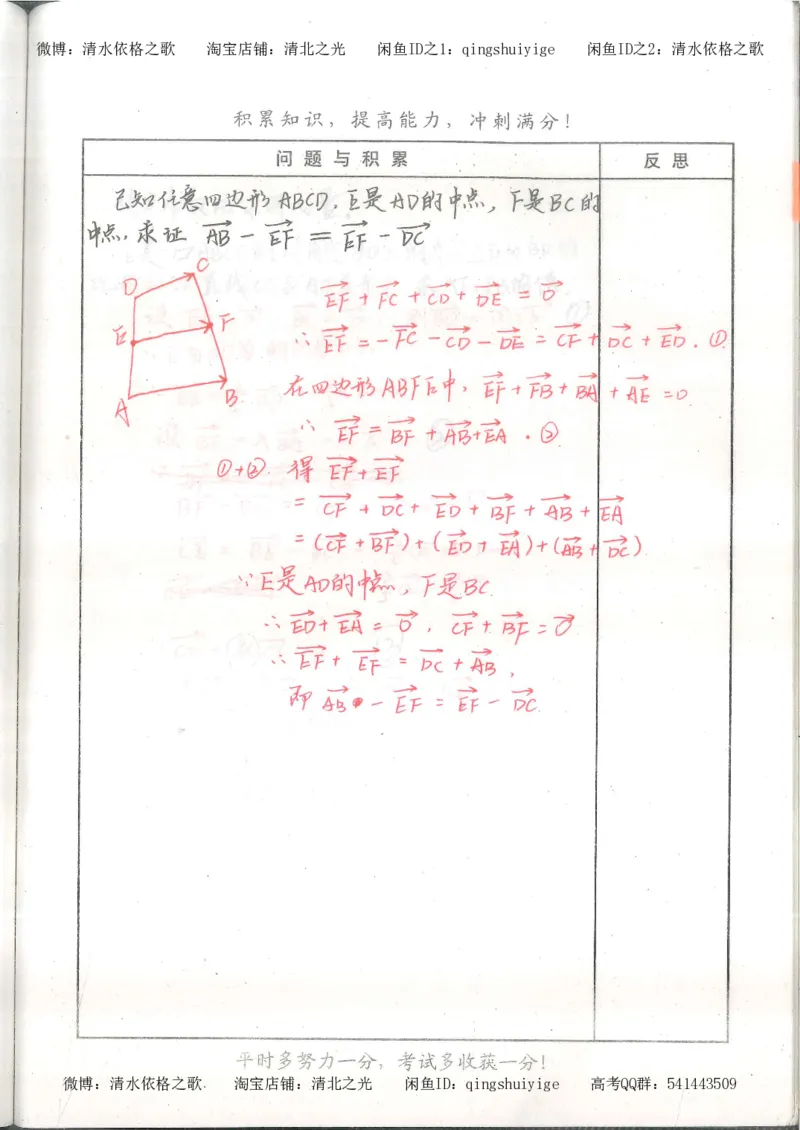 微博：清水依格之歌 淘宝店铺：清北之光 闲鱼ID之1：qingshuiyige 闲鱼ID之2：清水依格之歌
积累知识，提高能力，冲刺满分！
问题与积累 反思
已知任意四边形ABCD，E是AD的中点，F是BC的
中点，求证 $\overrightarrow{AB}-\overrightarrow{EF}=\overrightarrow{EF}-\overrightarrow{DC}$
D C
E F
A B
$\overrightarrow{EF}+\overrightarrow{FC}+\overrightarrow{CD}+\overrightarrow{DE}=\overrightarrow{0}$
∴ $\overrightarrow{EF}=-\overrightarrow{FC}-\overrightarrow{CD}-\overrightarrow{DE}=\overrightarrow{CF}+\overrightarrow{DC}+\overrightarrow{ED}$．①
在四边形ABFE中，$\overrightarrow{EF}+\overrightarrow{FB}+\overrightarrow{BA}+\overrightarrow{AE}=0$
∴ $\overrightarrow{EF}=\overrightarrow{BF}+\overrightarrow{AB}+\overrightarrow{EA}$．②
①+②．得 $\overrightarrow{EF}+\overrightarrow{EF}$
$=\overrightarrow{CF}+\overrightarrow{DC}+\overrightarrow{ED}+\overrightarrow{BF}+\overrightarrow{AB}+\overrightarrow{EA}$
$=(\overrightarrow{CF}+\overrightarrow{BF})+(\overrightarrow{ED}+\overrightarrow{EA})+(\overrightarrow{AB}+\overrightarrow{DC})$
∵E是AD的中点，F是BC．
∴ $\overrightarrow{ED}+\overrightarrow{EA}=\overrightarrow{0}$．$\overrightarrow{CF}+\overrightarrow{BF}=\overrightarrow{0}$
∴ $\overrightarrow{EF}+\overrightarrow{EF}=\overrightarrow{DC}+\overrightarrow{AB}$，
即 $\overrightarrow{AB}-\overrightarrow{EF}=\overrightarrow{EF}-\overrightarrow{DC}$．
平时多努力一分，考试多收获一分！
微博：清水依格之歌 淘宝店铺：清北之光 闲鱼ID：qingshuiyige 高考QQ群：541443509